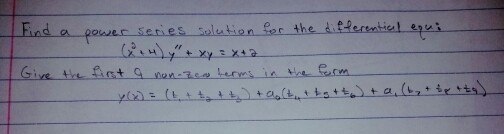 Find a power series solution for the differential equ:
(x²+4) y" + xy = x+2
Give the first 9 non-zero terms in the form
y(x) = (t₁ + t₂ + t₃) + a₀(t₄ + t₅ + t₆) + a₁(t₇ + t₈ + t₉)